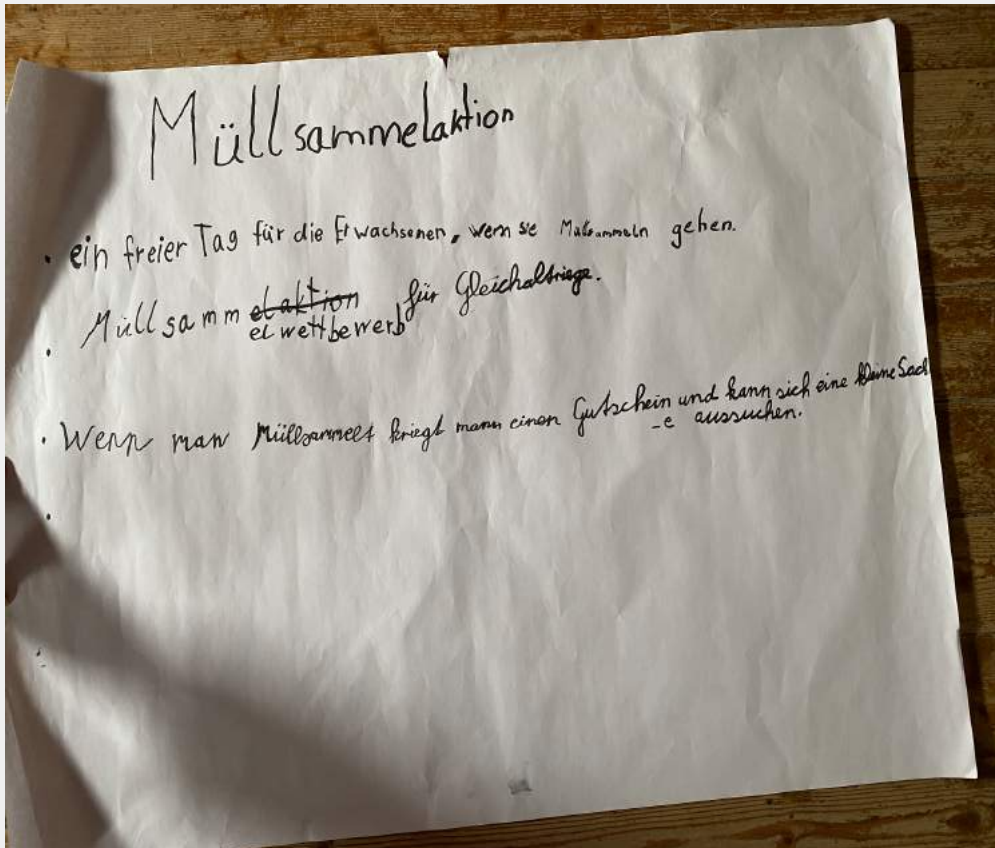 Müllsammelaktion
· ein freier Tag für die Erwachsenen, wenn sie Müllsammeln gehen.
· Müllsamm~~elaktion~~ für Gleichaltriege.
elwettbewerb
· Wenn man Müllsammelt kriegt mann einen Gutschein und kann sich eine kleine Sach
-e aussuchen.
·